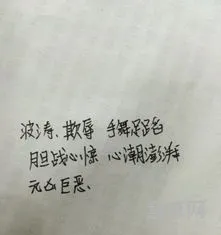 波涛、欺辱 手舞足蹈
胆战心惊 心潮澎湃
元凶巨恶、